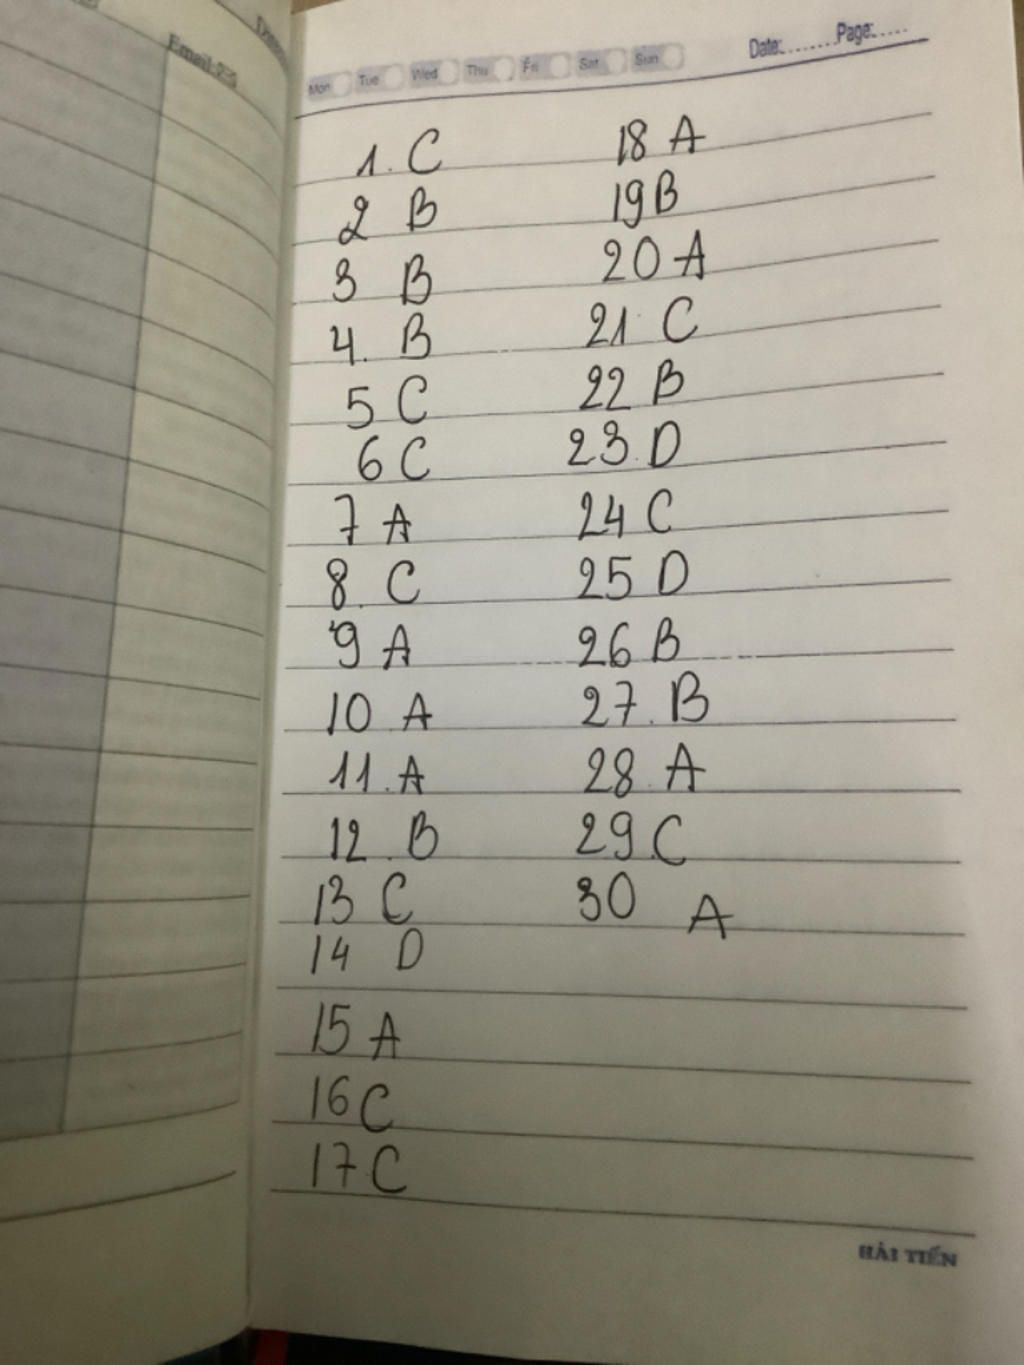 Email:
Mon Tue Wed Thu Fri Sat Sun Date:....... Page:.....
1. C
2 B
3 B
4. B
5 C
6 C
7 A
8. C
9 A
10 A
11. A
12. B
13 C
14 D
15 A
16 C
17 C
18 A
19 B
20 A
21. C
22 B
23. D
24 C
25 D
26 B
27. B
28. A
29. C
30 A
HẢI TIẾN